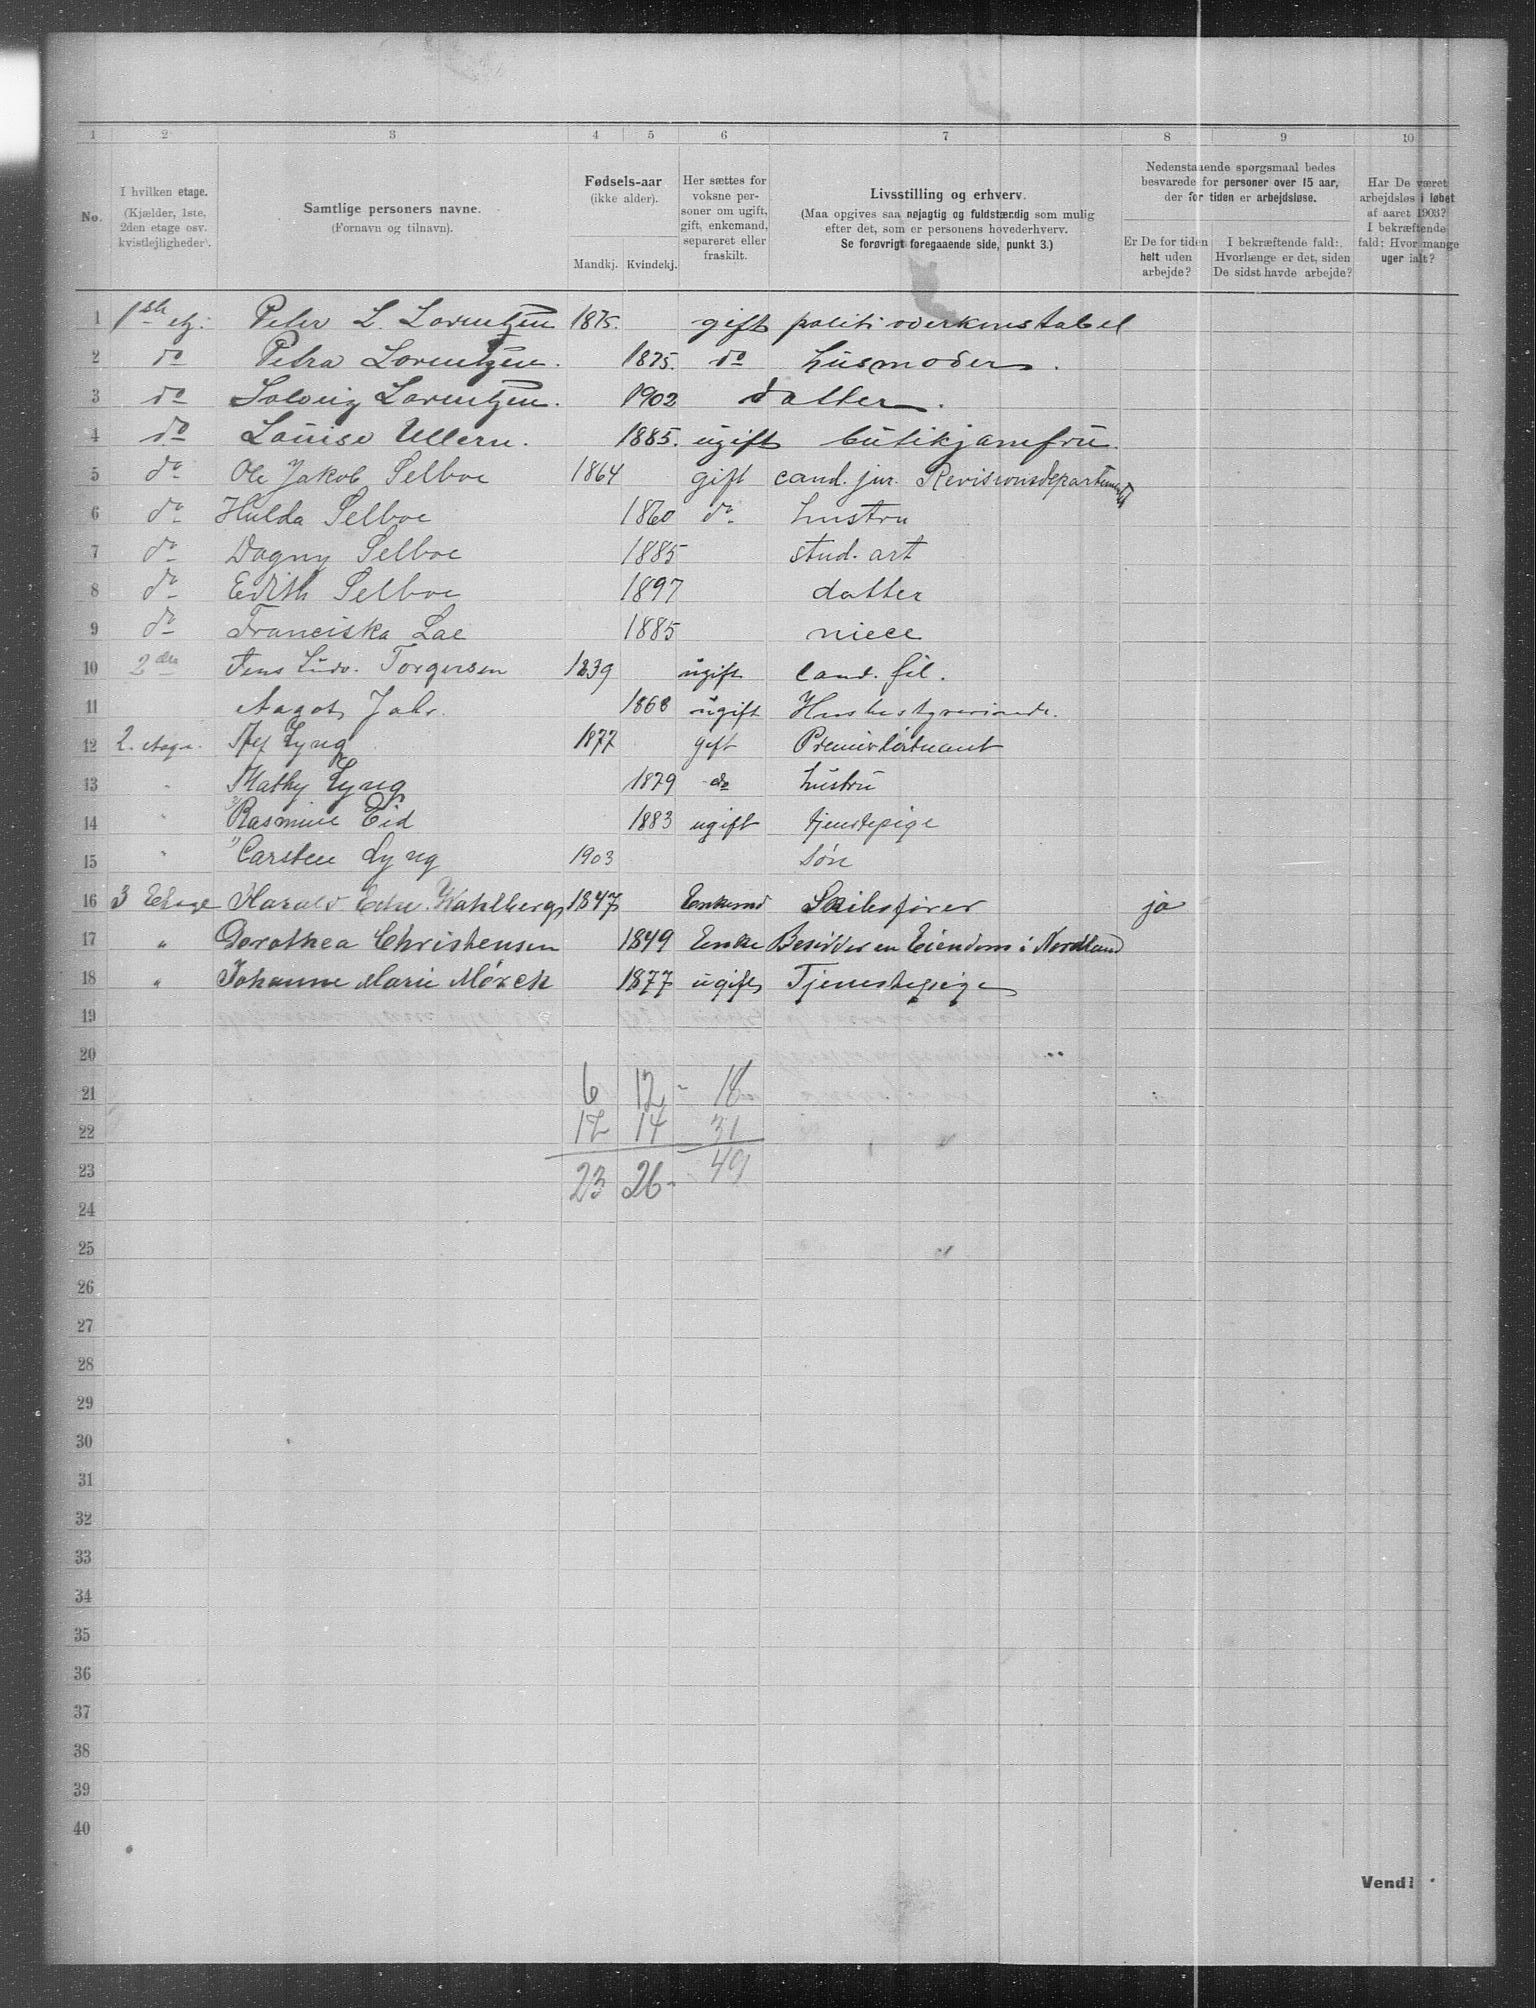 1 2 3 4 5 6 7 8 9 10
No.
I hvilken etage.
(Kjælder, 1ste,
2den etage osv.
kvistlejligheder).
Samtlige personers navne.
(Fornavn og tilnavn).
Fødsels-aar
(ikke alder).
Mandkj. Kvindekj.
Her sættes for
voksne per-
soner om ugift,
gift, enkemand,
separeret eller
fraskilt.
Livsstilling og erhverv.
(Maa opgives saa nøjagtig og fuldstærdig som mulig
efter det, som er personens hovederhverv.
Se forøvrigt foregaaende side, punkt 3.)
Nedenstaaende spørgsmaal bedes
besvarede for personer over 15 aar,
der for tiden er arbejdsløse.
Er De for tiden
helt uden
arbejde?
I bekræftende fald:
Hvorlænge er det, siden
De sidst havde arbejde?
Har De været
arbejdsløs i løbet
af aaret 1903?
I bekræftende
fald: Hvor mange
uger ialt?
1 1ste etg. Peter L. Lorentzen 1875. gift politioverkonstabel
2 do Petra Lorentzen. 1875. do husmoder.
3 do Solveig Lorentzen. 1902 datter.
4 do Louise Ullern. 1885. ugift butikjomfru.
5 do Ole Jakob Selboe 1864 gift cand. jur. Revisionsdepartementet
6 do Hulda Selboe 1860 do hustru
7 do Dagny Selboe 1885 stud. art
8 do Edith Selboe 1897 datter
9 do Franciska Lae 1885 niece
10 2den Jens Ludv. Torgersen 1839 ugift Cand. fil.
11 Aagot Jahr. 1868 ugift Husbestyrerinde.
12 2. Etage. Lyng 1877 gift Premierløitnant
13 " Mathy Lyng 1879 do hustru
14 " Rasmine Eid 1883 ugift tjenstepige
15 " Carsten Lyng 1903 søn
16 3 Etage Harald Wahlberg 1847 Enkemd Skibsfører ja
17 " Dorothea Christensen 1849 Enke Besidder en Eiendom i Nordland
18 " Johanne Marie Mörck 1877 ugift Tjenestepige
19
20
21 6 12 - 18
22 12 14 31
23 23 26 - 49
24
25
26
27
28
29
30
31
32
33
34
35
36
37
38
39
40
Vend!